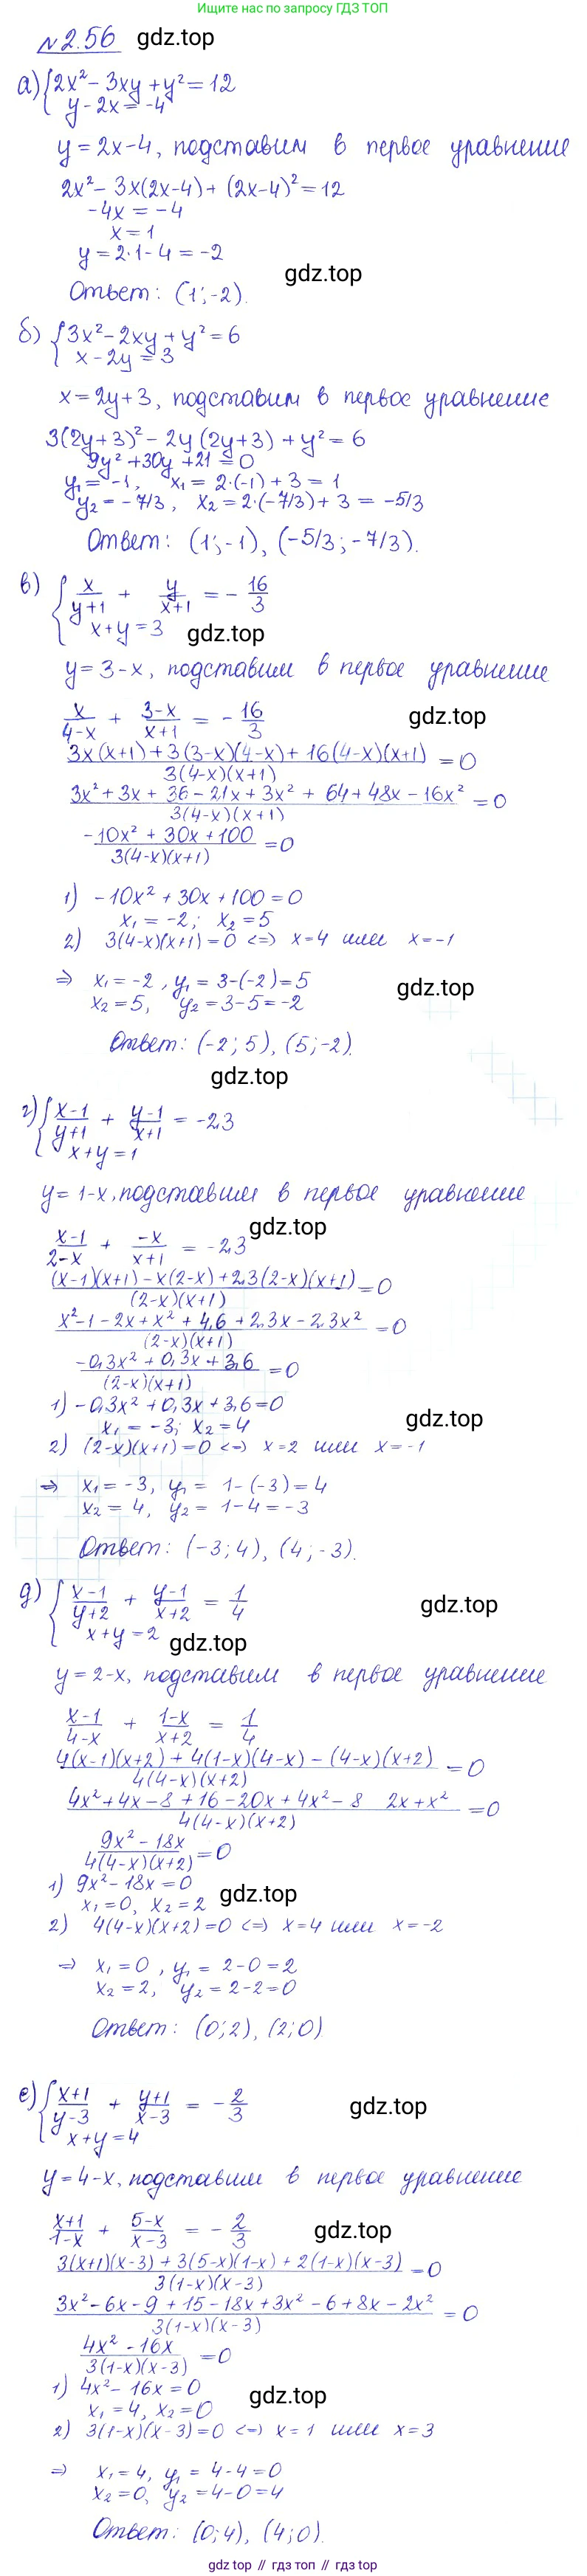 Нашли больше решений по запросу ГДЗ ТОП
№2.56 gdz.top
а) {2x² - 3xy + y² = 12
y - 2x = -4
y = 2x-4, подставим в первое уравнение
2x² - 3x(2x-4) + (2x-4)² = 12
-4x = -4
x = 1
y = 2·1 - 4 = -2
gdz.top
Ответ: (1; -2).
б) {3x² - 2xy + y² = 6
x - 2y = 3
x = 2y+3, подставим в первое уравнение
3(2y+3)² - 2y(2y+3) + y² = 6
9y² + 30y + 21 = 0
y₁ = -1, x₁ = 2·(-1) + 3 = 1
y₂ = -7/3, x₂ = 2·(-7/3) + 3 = -5/3
Ответ: (1; -1), (-5/3; -7/3).
в) {x/(y+1) + y/(x+1) = -16/3
x+y = 3 gdz.top
y = 3-x, подставим в первое уравнение
x/(4-x) + (3-x)/(x+1) = -16/3 gdz.top
(3x(x+1) + 3(3-x)(4-x) + 16(4-x)(x+1))/(3(4-x)(x+1)) = 0
(3x² + 3x + 36 - 21x + 3x² + 64 + 48x - 16x²)/(3(4-x)(x+1)) = 0
(-10x² + 30x + 100)/(3(4-x)(x+1)) = 0
1) -10x² + 30x + 100 = 0
x₁ = -2; x₂ = 5
2) 3(4-x)(x+1) = 0 <=> x = 4 или x = -1
=> x₁ = -2, y₁ = 3-(-2) = 5
x₂ = 5, y₂ = 3-5 = -2
gdz.top
Ответ: (-2; 5), (5; -2).
gdz.top
г) {(x-1)/(y+1) + (y-1)/(x+1) = -2,3
x+y = 1
y = 1-x, подставим в первое уравнение
gdz.top
(x-1)/(2-x) + (-x)/(x+1) = -2,3
((x-1)(x+1) - x(2-x) + 2,3(2-x)(x+1))/((2-x)(x+1)) = 0
(x² - 1 - 2x + x² + 4,6 + 2,3x - 2,3x²)/((2-x)(x+1)) = 0
(-0,3x² + 0,3x + 3,6)/((2-x)(x+1)) = 0
1) -0,3x² + 0,3x + 3,6 = 0
gdz.top
x₁ = -3; x₂ = 4
2) (2-x)(x+1) = 0 <=> x = 2 или x = -1
=> x₁ = -3, y₁ = 1-(-3) = 4
x₂ = 4, y₂ = 1-4 = -3
Ответ: (-3; 4), (4; -3).
д) {(x-1)/(y+2) + (y-1)/(x+2) = 1/4 gdz.top
x+y = 2 gdz.top
y = 2-x, подставим в первое уравнение
(x-1)/(4-x) + (1-x)/(x+2) = 1/4
(4(x-1)(x+2) + 4(1-x)(4-x) - (4-x)(x+2))/(4(4-x)(x+2)) = 0
(4x² + 4x - 8 + 16 - 20x + 4x² - 8 2x + x²)/(4(4-x)(x+2)) = 0
(9x² - 18x)/(4(4-x)(x+2)) = 0
1) 9x² - 18x = 0
x₁ = 0, x₂ = 2 gdz.top
2) 4(4-x)(x+2) = 0 <=> x = 4 или x = -2
=> x₁ = 0, y₁ = 2-0 = 2
x₂ = 2, y₂ = 2-2 = 0
Ответ: (0; 2), (2; 0)
е) {(x+1)/(y-3) + (y+1)/(x-3) = -2/3 gdz.top
x+y = 4
y = 4-x, подставим в первое уравнение
(x+1)/(1-x) + (5-x)/(x-3) = -2/3 gdz.top
(3(x+1)(x-3) + 3(5-x)(1-x) + 2(1-x)(x-3))/(3(1-x)(x-3)) = 0
(3x² - 6x - 9 + 15 - 18x + 3x² - 6 + 8x - 2x²)/(3(1-x)(x-3)) = 0
(4x² - 16x)/(3(1-x)(x-3)) = 0
1) 4x² - 16x = 0
gdz.top
x₁ = 4, x₂ = 0
2) 3(1-x)(x-3) = 0 <=> x = 1 или x = 3
=> x₁ = 4, y₁ = 4-4 = 0
x₂ = 0, y₂ = 4-0 = 4
Ответ: (0; 4), (4; 0).
gdz.top // gdz.top // gdz.top